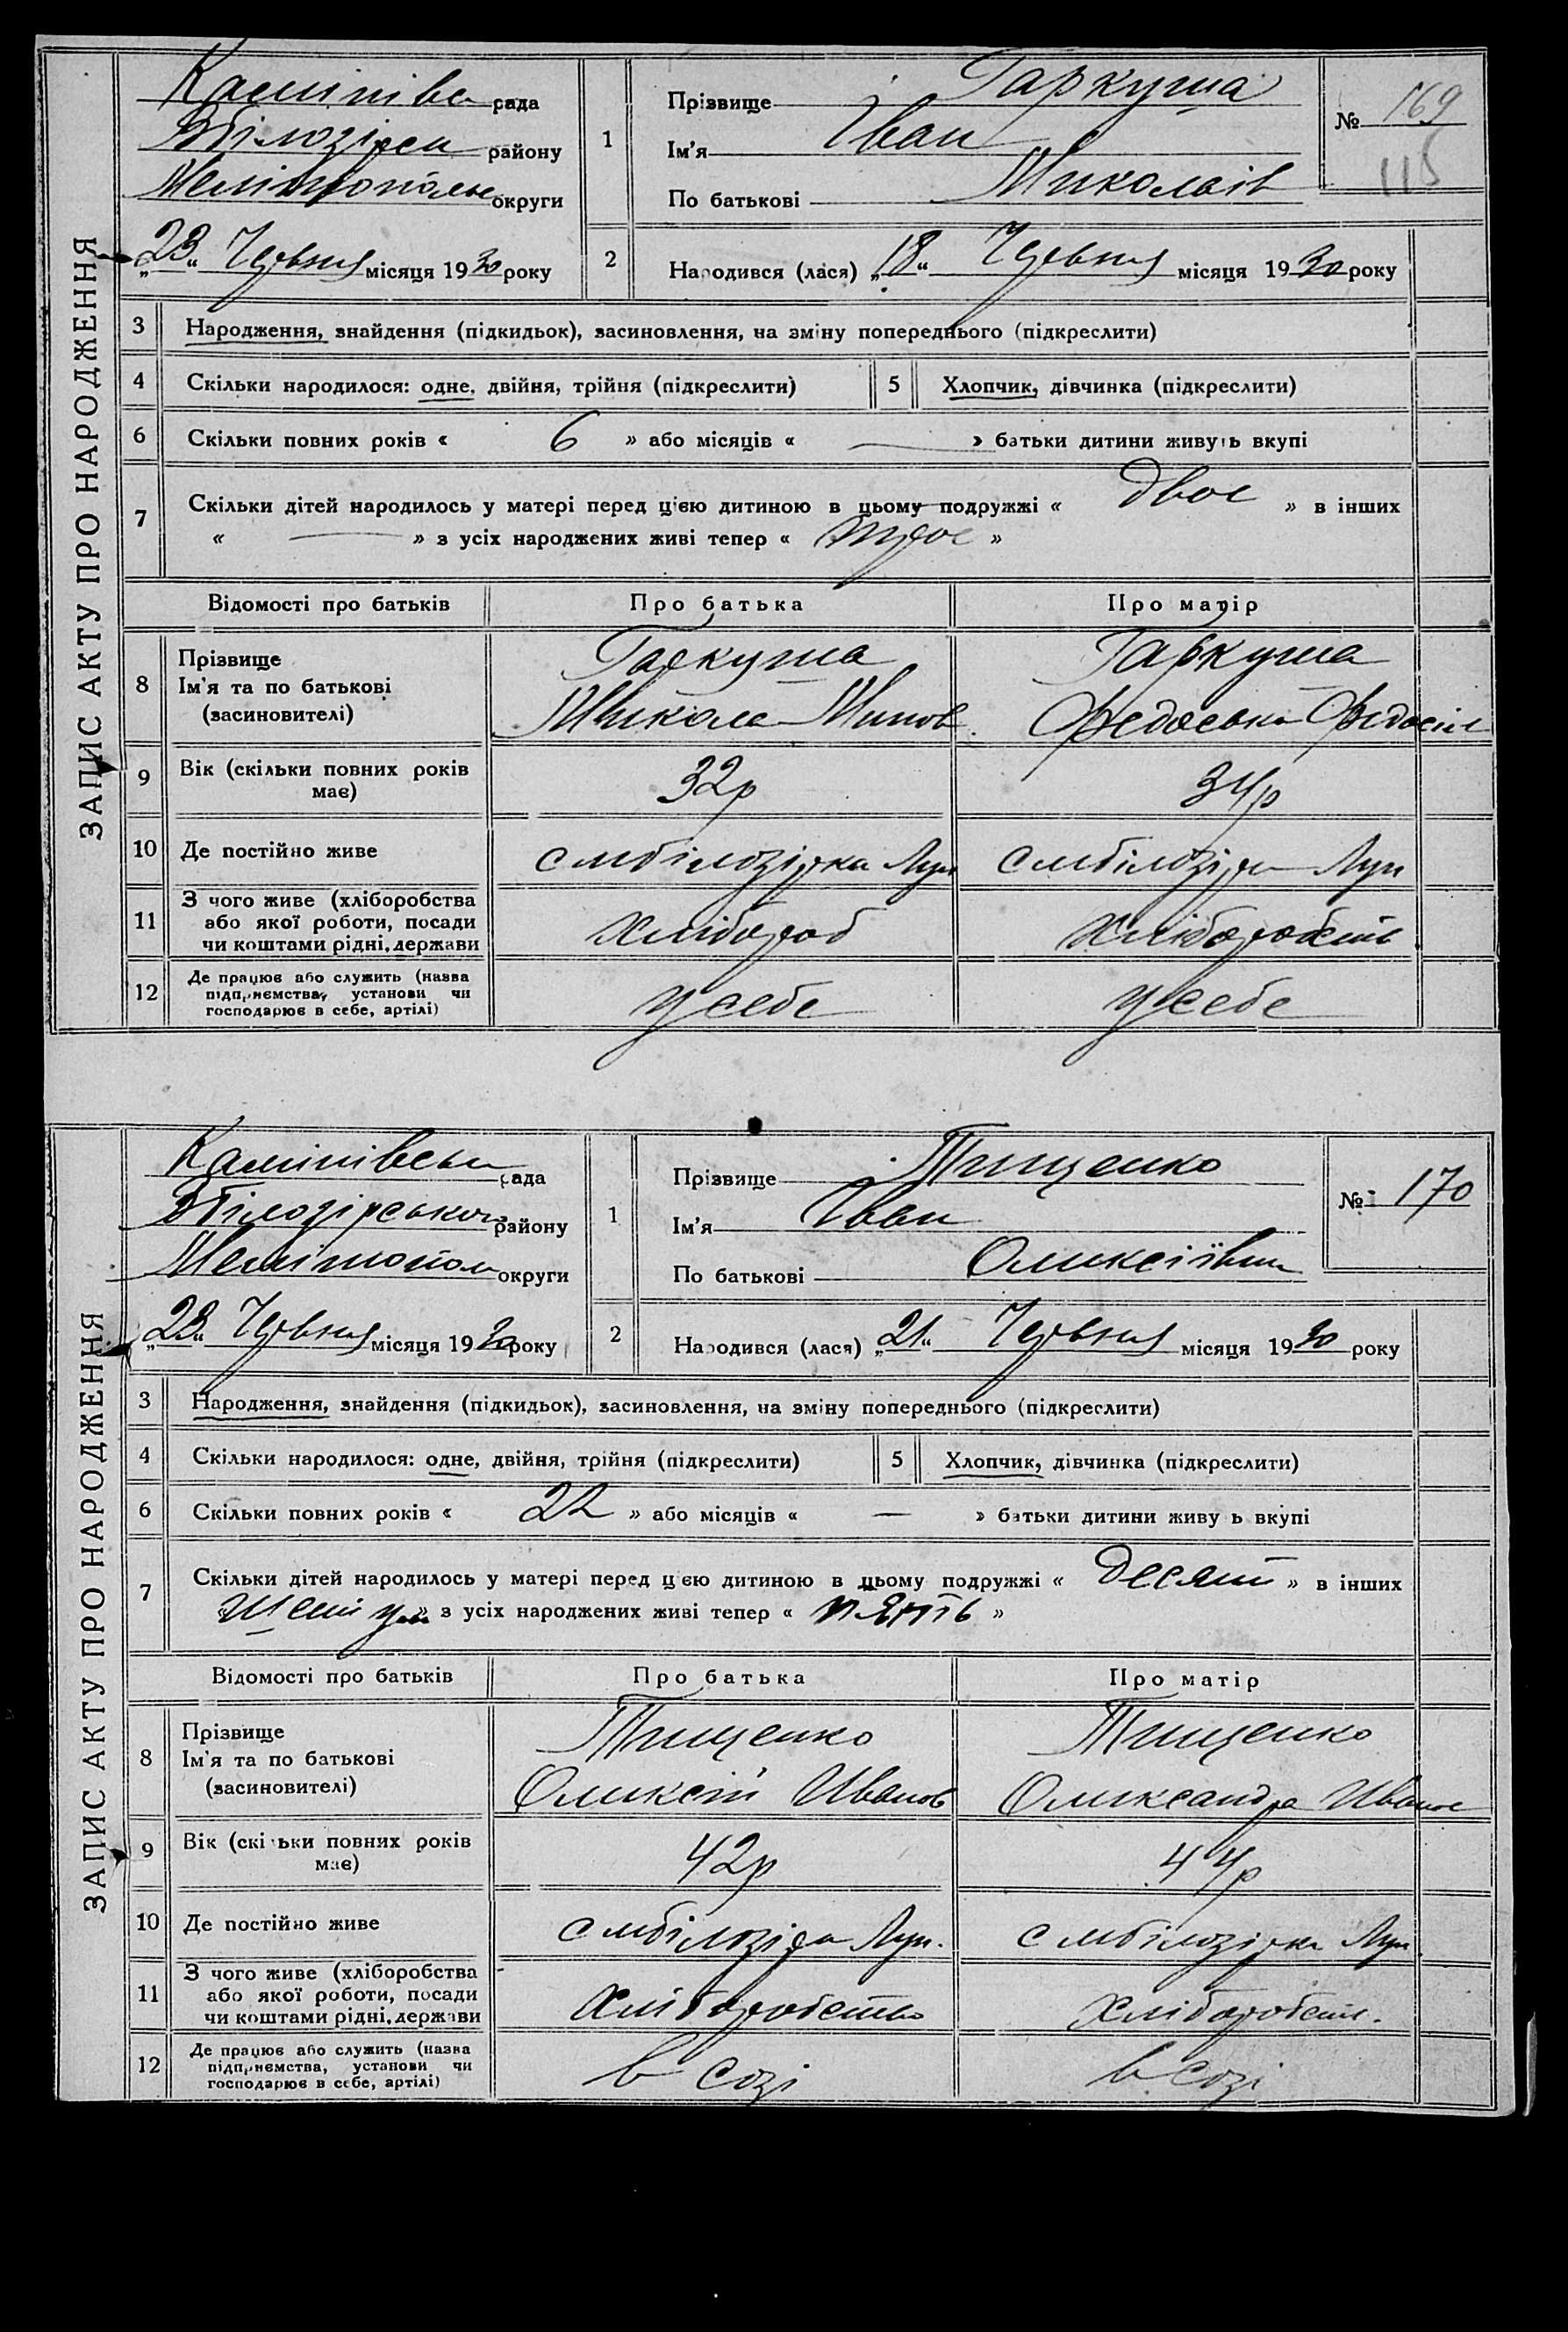 ЗАПИС АКТУ ПРО НАРОДЖЕННЯ
Калінівс рада
Вбілозірсь району
Мелітопольс округи
„23“ Червня місяця 1930 року
1
Прізвище Гаркуша
Ім'я Іван
По батькові Миколаїв
№ 169
115
2
Народився (лася) „18“ Червня місяця 1930 року
3 Народження, знайдення (підкидьок), засиновлення, на зміну попереднього (підкреслити)
4 Скільки народилося: одне, двійня, трійня (підкреслити) 5 Хлопчик, дівчинка (підкреслити)
6 Скільки повних років « 6 » або місяців « — » батьки дитини живуть вкупі
7 Скільки дітей народилось у матері перед цією дитиною в цьому подружжі « двоє » в інших
« — » з усіх народжених живі тепер « троє »
Відомості про батьків Про батька Про матір
8 Прізвище
Ім'я та по батькові
(засновителі)
Гаркуша
Микола
Гаркуша
Федоська Федосіє
9 Вік (скільки повних років
має)
32р 34р
10 Де постійно живе смбілозірка Луп смбілозірка Луп
11 З чого живе (хліборобства
або якої роботи, посади
чи коштами рідні, держави
хлібороб хліборобств
12 Де працює або служить (назва
підприємства, установи чи
господарює в себе, артілі)
у себе у себе
ЗАПИС АКТУ ПРО НАРОДЖЕННЯ
Калінівськ рада
Вбілозірського району
Мелітопол округи
„23“ Червня місяця 1930 року
1
Прізвище Тищенко
Ім'я Іван
По батькові Оликсіївич
№ 170
2
Народився (лася) „21“ Червня місяця 1930 року
3 Народження, знайдення (підкидьок), засиновлення, на зміну попереднього (підкреслити)
4 Скільки народилося: одне, двійня, трійня (підкреслити) 5 Хлопчик, дівчинка (підкреслити)
6 Скільки повних років « 22 » або місяців « — » батьки дитини живуть вкупі
7 Скільки дітей народилось у матері перед цією дитиною в цьому подружжі « десять » в інших
« » з усіх народжених живі тепер « пять »
Відомості про батьків Про батька Про матір
8 Прізвище
Ім'я та по батькові
(засиновителі)
Тищенко
Оликсій Иванов
Тищенко
Олександра Иванов
9 Вік (скільки повних років
має)
42р 44р
10 Де постійно живе смбілозірка Луп. смбілозірка Луп.
11 З чого живе (хліборобства
або якої роботи, посади
чи коштами рідні, держави
Хліборобство Хліборобств.
12 Де працює або служить (назва
підприємства, установи чи
господарює в себе, артілі)
в созі в созі